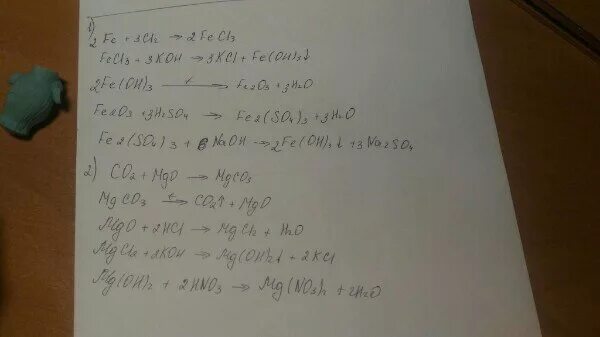 1)
2Fe + 3Cl2 → 2FeCl3
FeCl3 + 3KOH → 3KCl + Fe(OH)3↓
2Fe(OH)3 —t→ Fe2O3 + 3H2O
Fe2O3 + 3H2SO4 → Fe2(SO4)3 + 3H2O
Fe2(SO4)3 + 6NaOH → 2Fe(OH)3↓ + 3Na2SO4
2) CO2 + MgO → MgCO3
MgCO3 —t→ CO2↑ + MgO
MgO + 2HCl → MgCl2 + H2O
MgCl2 + 2KOH → Mg(OH)2↓ + 2KCl
Mg(OH)2 + 2HNO3 → Mg(NO3)2 + 2H2O